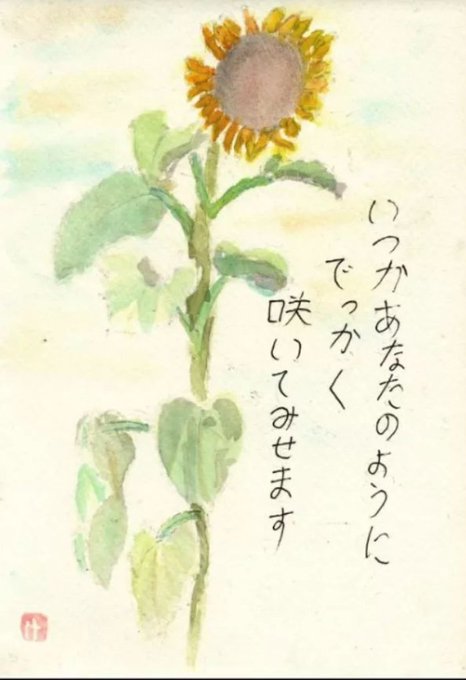 いつかあなたのように
でっかく
咲いてみせます
け